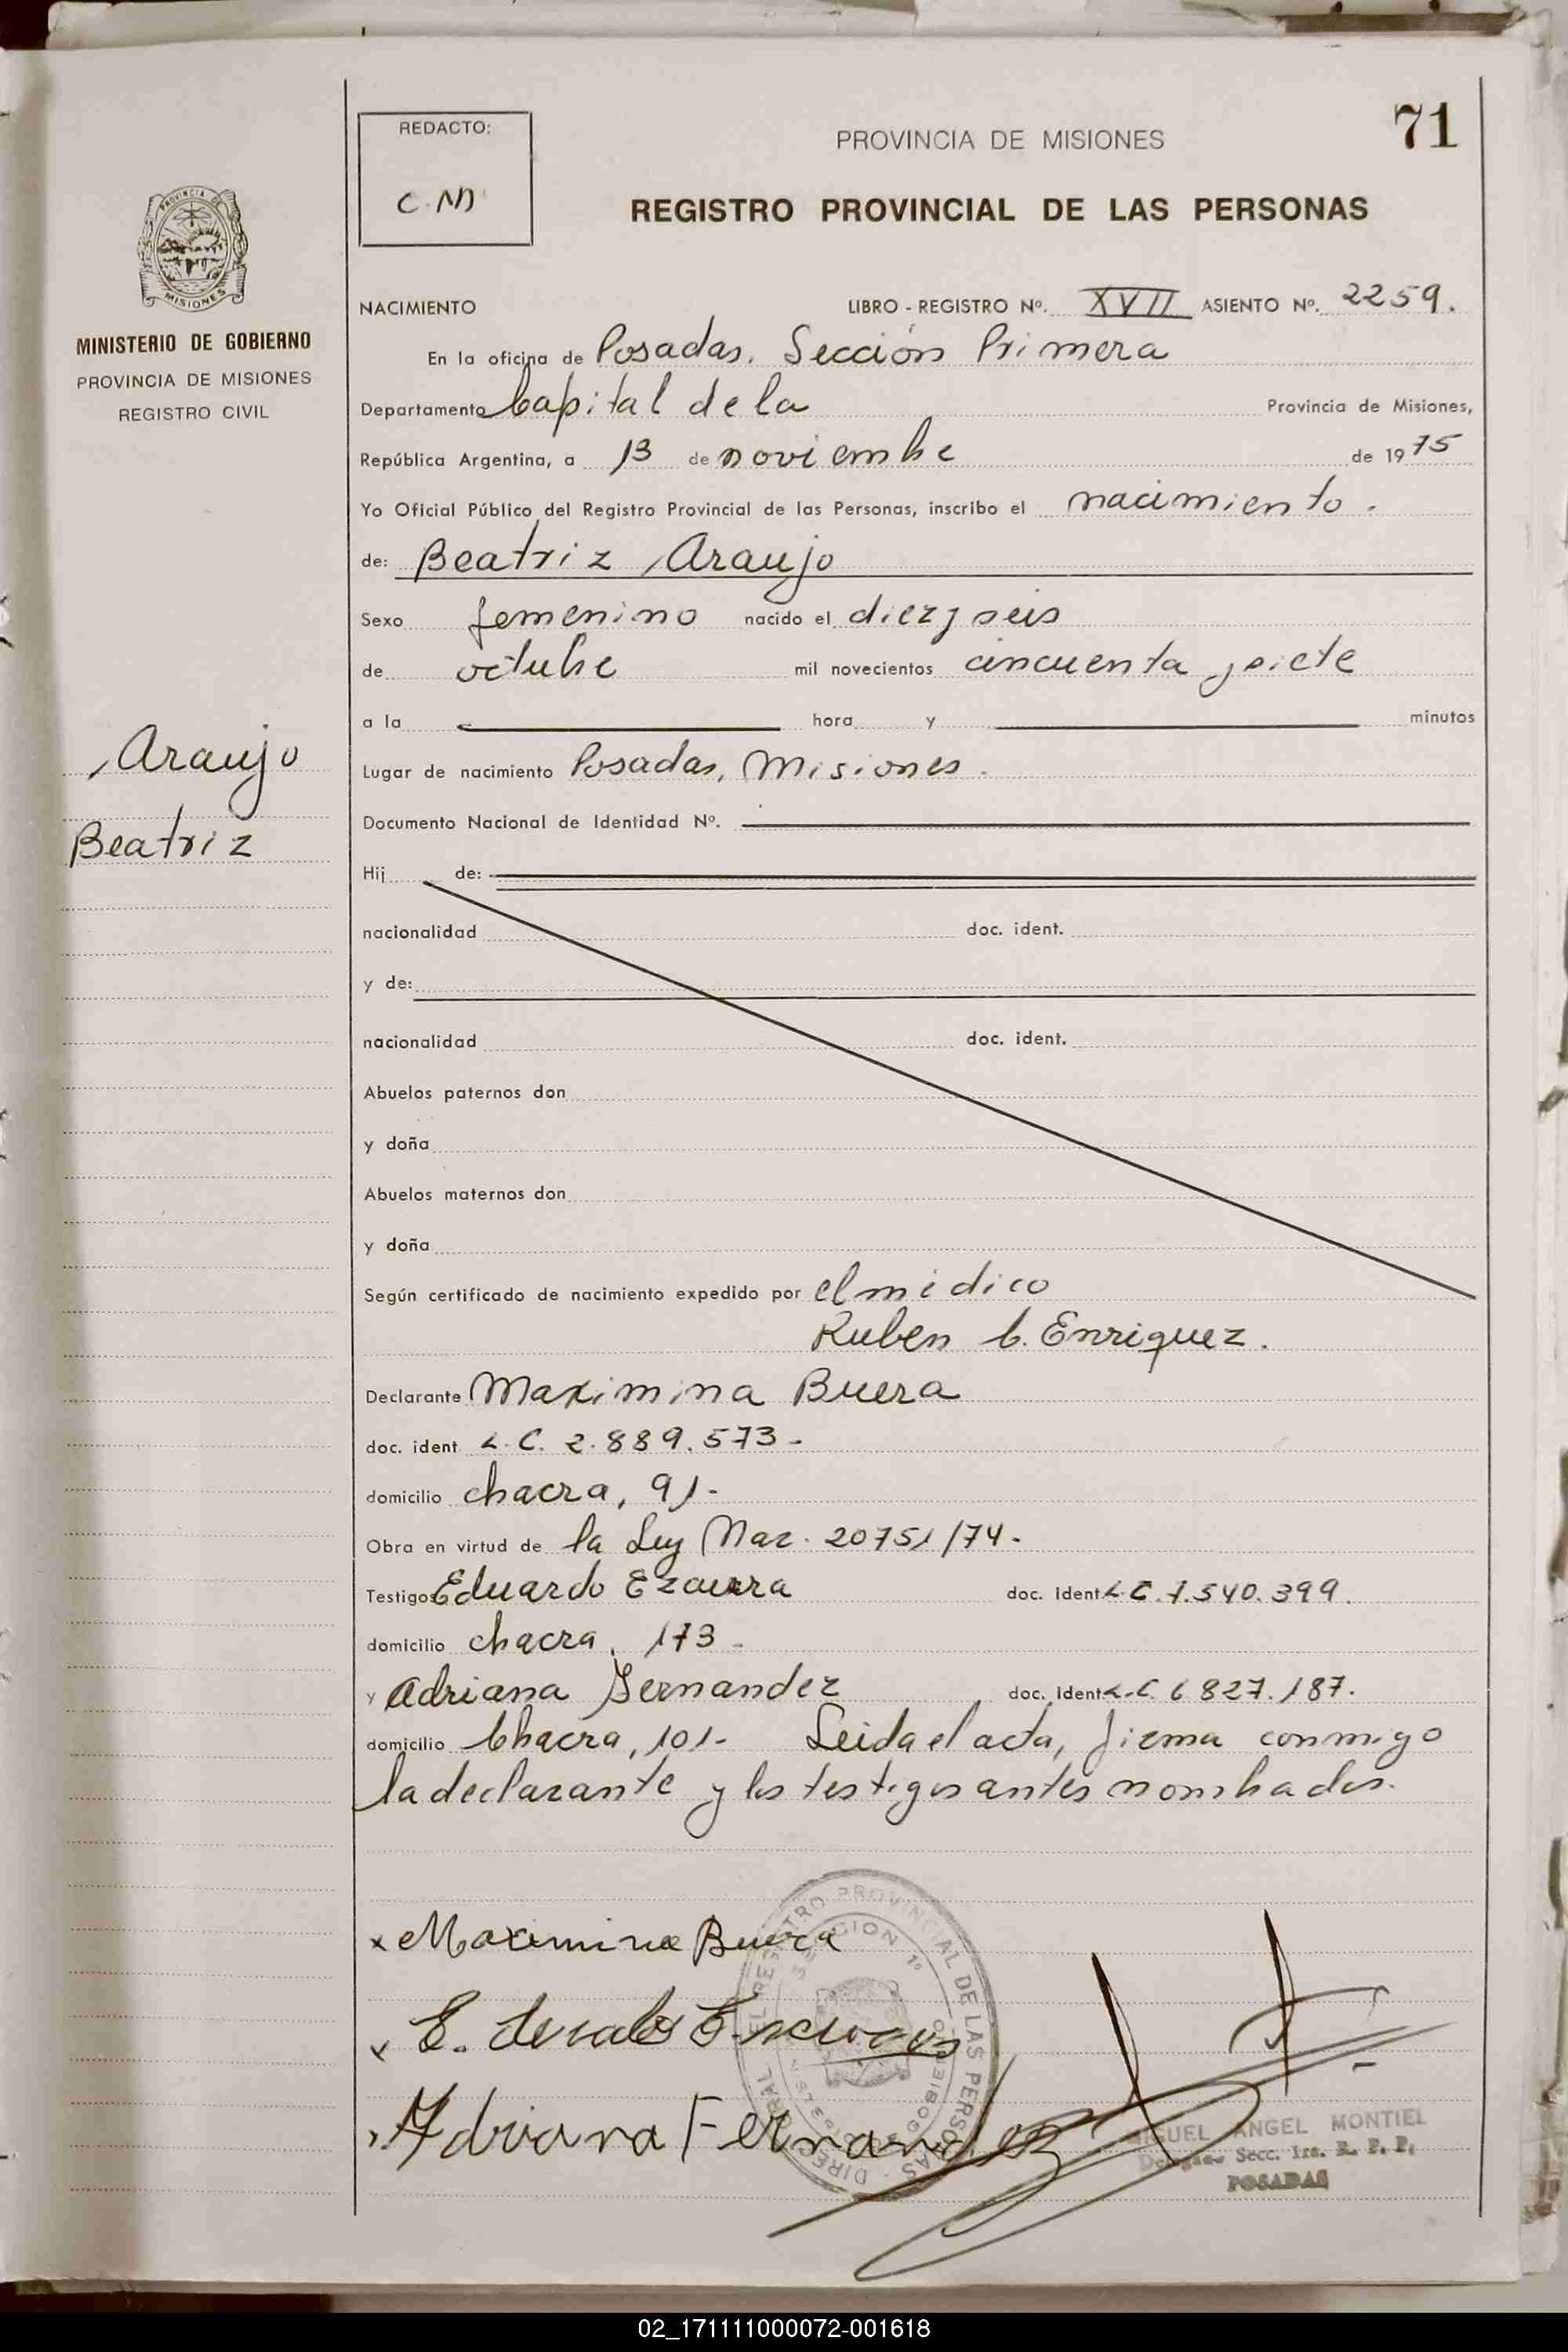 71
REDACTO:
C.M
PROVINCIA DE MISIONES
REGISTRO PROVINCIAL DE LAS PERSONAS
PROVINCIA DE
MISIONES
MINISTERIO DE GOBIERNO
PROVINCIA DE MISIONES
REGISTRO CIVIL
NACIMIENTO LIBRO - REGISTRO Nº. XVII ASIENTO Nº. 2259.
En la oficina de Posadas. Sección Primera
Departamento Capital de la Provincia de Misiones,
República Argentina, a 13 de noviembre de 1975
Yo Oficial Público del Registro Provincial de las Personas, inscribo el nacimiento.
de: Beatriz Araujo
Sexo femenino nacido el diez y seis
de octubre mil novecientos cincuenta y siete
a la hora y minutos
Araujo
Beatriz
Lugar de nacimiento Posadas, Misiones.
Documento Nacional de Identidad Nº.
Hij de:
nacionalidad doc. ident.
y de:
nacionalidad doc. ident.
Abuelos paternos don
y doña
Abuelos maternos don
y doña
Según certificado de nacimiento expedido por el médico
Ruben C. Enriquez.
Declarante Maximina Buera
doc. ident L.C. 2.889.573-
domicilio chacra, 91-
Obra en virtud de la Ley Nac. 20751/74-
Testigos Eduardo Ezcurra doc. ident L.E. 7.540.399.
domicilio chacra, 173-
y Adriana Fernandez doc. ident L.C. 6827.187.
domicilio Chacra, 101- Leida el acta, firma conmigo
la declarante y los testigos antes nombrados.
x Maximina Buera
Adriana Fernandez
REGISTRO PROVINCIAL DE LAS PERSONAS
SECCION 1º
MIGUEL ANGEL MONTIEL
Delegado Secc. 1ra. R. P. P.
POSADAS
02_171111000072-001618